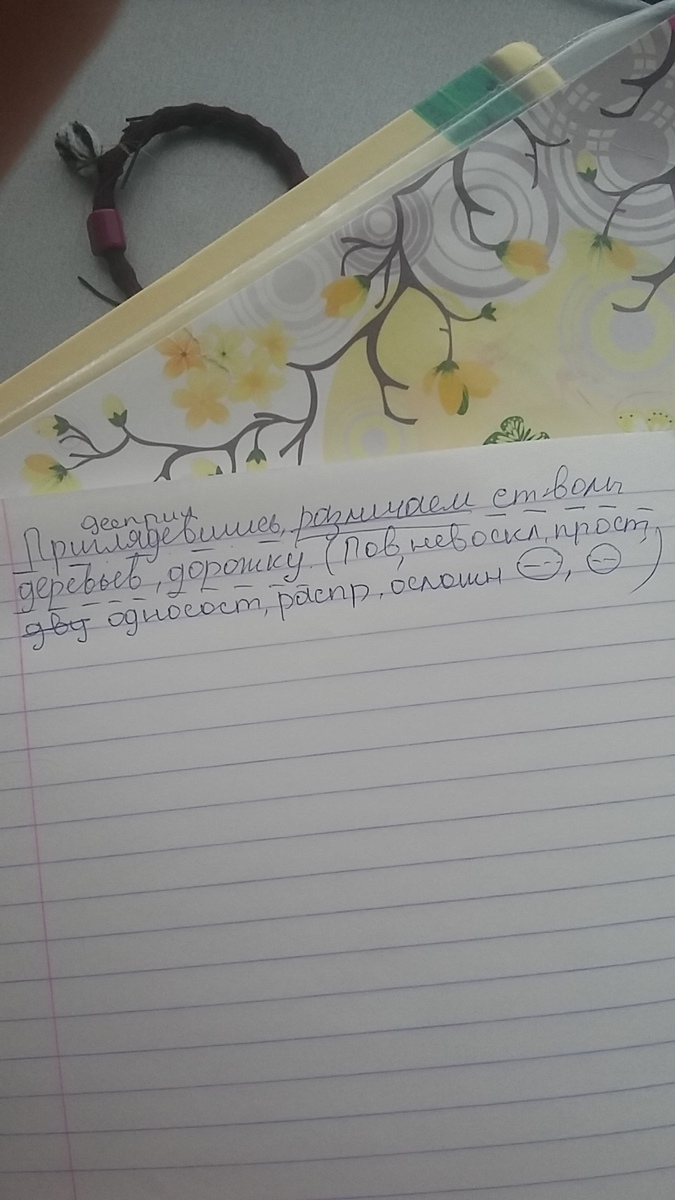 дееприч
Приглядевшись, различаем стволы
деревьев, дорожку. (Пов, невоскл, прост,
дву односост, распр, осложн ⊖, ⊖)